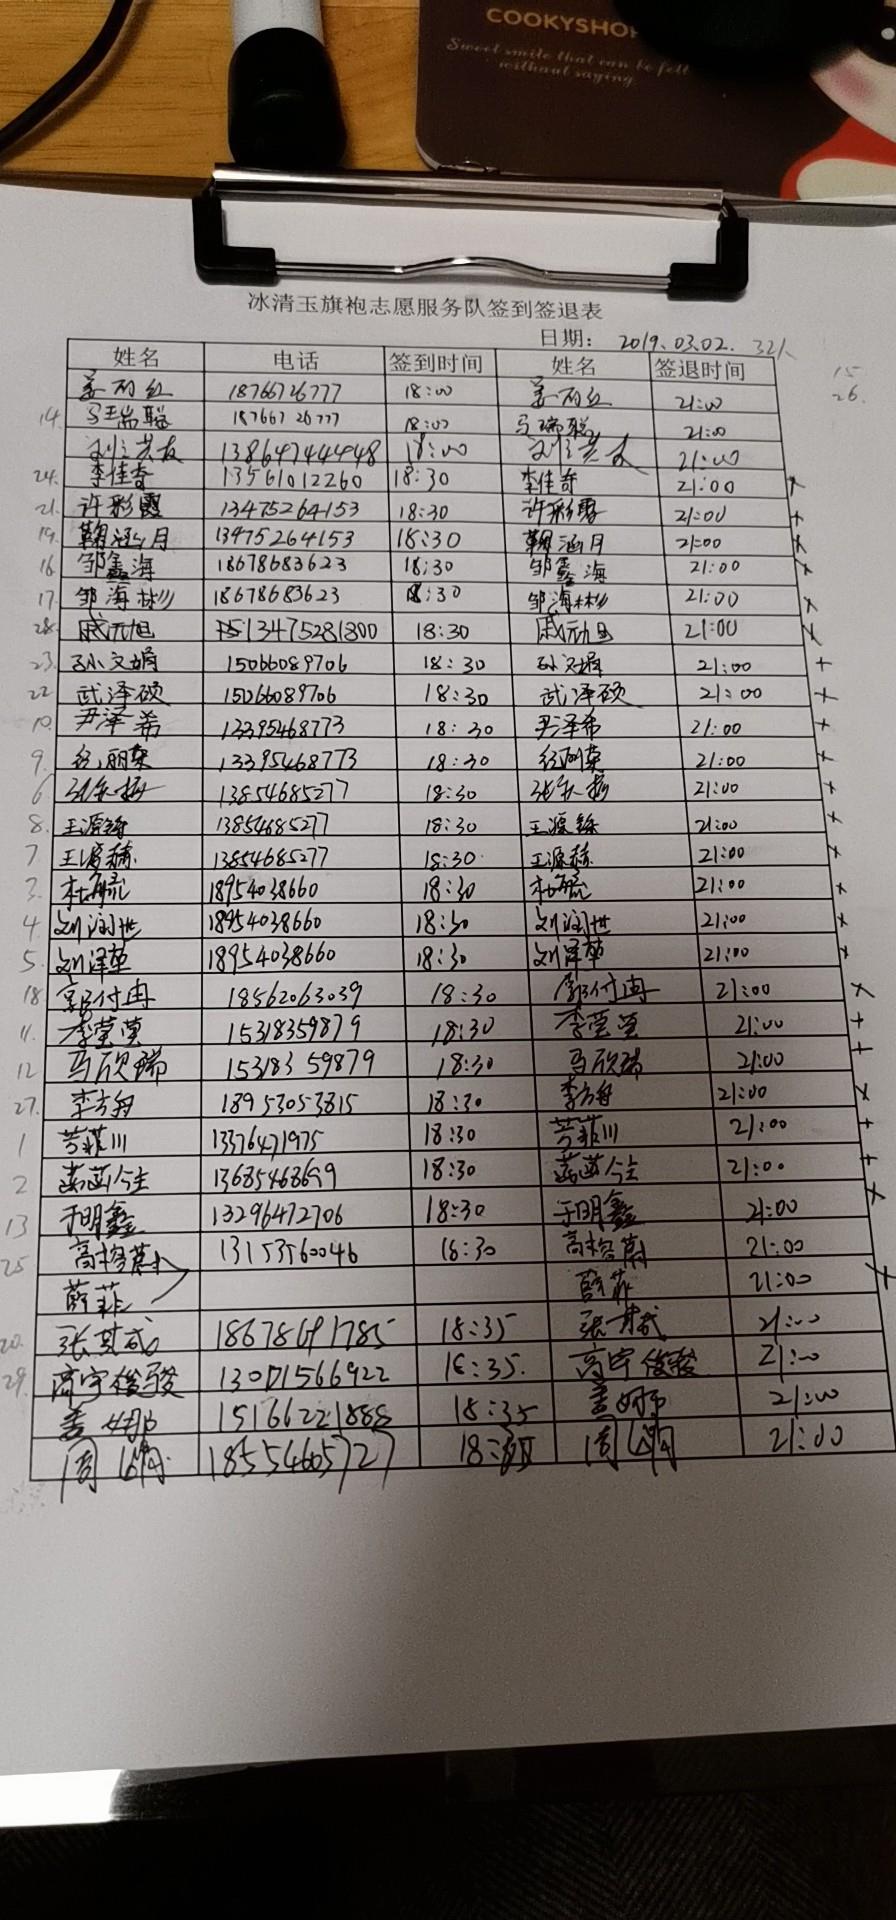 COOKYSHOP
Sweet smile that can be felt
without saying.
冰清玉旗袍志愿服务队签到签退表
日期: 2019.03.02. 32人
姓名 电话 签到时间 姓名 签退时间 15
姜丽红 18766726777 18:00 姜丽红 21:00 26.
14. 马瑞聪 18766726777 18:00 马瑞聪 21:00
13864744448 18:00 21:00
24. 李佳奇 13561012260 18:30 李佳奇 21:00 x
21. 许彩霞 13475264153 18:30 许彩霞 21:00 +
19. 鞠涵月 13475264153 18:30 鞠涵月 21:00 x
16 邹鑫海 18678683623 18:30 邹鑫海 21:00 x
17. 邹海彬 18678683623 18:30 邹海彬 21:00 x
28. 戚元旭 13475281800 18:30 戚元旭 21:00 x
23. 孙文娟 15066089706 18:30 孙文娟 21:00 +
22 武泽硕 15066089706 18:30 武泽硕 21:00 +
10. 尹泽希 13395468773 18:30 尹泽希 21:00 +
9. 丽荣 13395468773 18:30 丽荣 21:00 x
6 13854685277 18:30 21:00 x
8. 王源 13854685277 18:30 王源 21:00 x
7 王源赫 13854685277 18:30 王源赫 21:00 x
3. 杜毓 18954038660 18:30 杜毓 21:00 x
4. 刘润世 18954038660 18:30 刘润世 21:00 x
5. 刘泽草 18954038660 18:30 刘泽草 21:00 x
18 郭付冉 18562063039 18:30 郭付冉 21:00 x
11. 李莹莹 15318359879 18:30 李莹莹 21:00 +
12 马欣瑞 15318359879 18:30 马欣瑞 21:00 +
27. 李方舟 18953053815 18:30 李方舟 21:00 x
1 13376471975 18:30 21:00 +
2 13685468699 18:30 21:00 +
13 于明鑫 13296472706 18:30 于明鑫 21:00 x
25 高榕蔚 13153560046 18:30 高榕蔚 21:00
蔚菲 蔚菲 21:00 x
20. 张其武 18678691785 18:35 张其武 21:00
29. 高宇俊骏 13071566922 18:35. 高宇俊骏 21:00
姜娜 15166221888 18:35 姜娜 21:00
周 18554605727 周 21:00